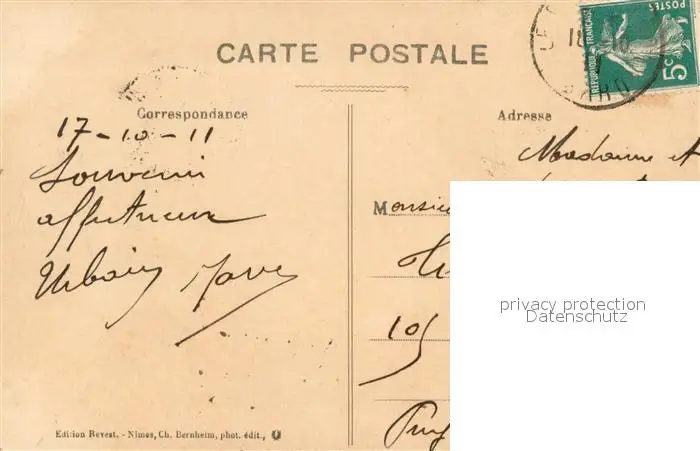 CARTE POSTALE
POSTES
RÉPUBLIQUE FRANÇAISE
5c
Correspondance
17-10-11
Souvenir
affectueux
Urbain
Adresse
Madame et
Monsieu
105
privacy protection
Datenschutz
Edition Revest. - Nimes, Ch. Bernheim, phot. édit.,